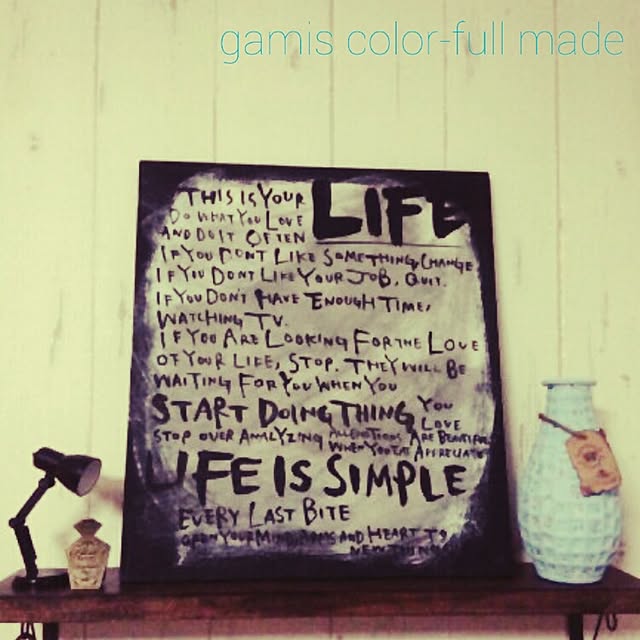 gamis color-full made
THIS IS YOUR LIFE
DO WHAT YOU LOVE
AND DO IT OFTEN
IF YOU DONT LIKE SOMETHING, CHANGE
IF YOU DONT LIKE YOUR JOB, QUIT.
IF YOU DONT HAVE ENOUGH TIME,
WATCHING TV.
IF YOU ARE LOOKING FOR THE LOVE
OF YOUR LIFE, STOP. THEY WILL BE
WAITING FOR YOU WHEN YOU
START DOING THING YOU LOVE
STOP OVER ANALYZING ARE BEAUTIFUL
WHEN YOU EAT APPRECIATE
LIFE IS SIMPLE
EVERY LAST BITE
OPEN YOUR MIND, ARMS AND HEART TO
NEW THING